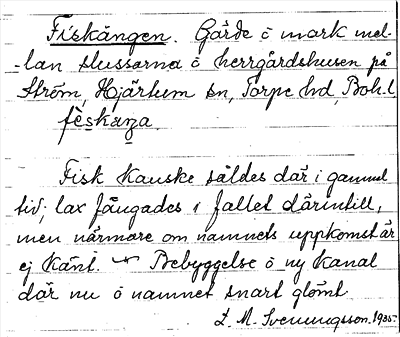 Fiskängen. Gärde ô mark mel-
-lan slussarna ô herrgårdshusen på
Ström, Hjärtum sn, Torpe hd, Boh.l
fèskæŋa.
Fisk kanske såldes där i gammel
tid; lax fångades i fallet därintill,
men närmare om namnets uppkomst är
ej känt. Bebyggelse ô ny kanal
där nu ô namnet snart glömt.
L. M. Svenungsson. 1935